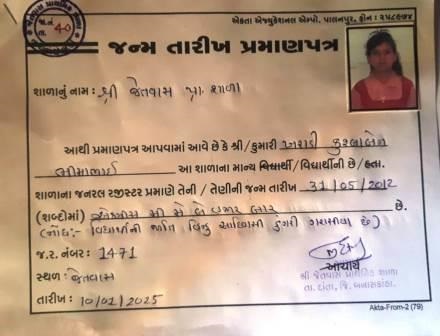 એકતા એજ્યુકેશનલ એમ્પો. પાલનપુર, ફોન : ૨૫૮૯૭૪
જ.નં. 40
જન્મ તારીખ પ્રમાણપત્ર
શાળાનું નામ : શ્રી જેતવાસ પ્રા. શાળા
આથી પ્રમાણપત્ર આપવામાં આવે છે કે શ્રી/કુમારી
ભીમાભાઈ આ શાળાના માન્ય વિદ્યાર્થી / વિદ્યાર્થીની છે / હતા.
શાળાના જનરલ રજીસ્ટર પ્રમાણે તેની / તેણીની જન્મ તારીખ 31/05/2012
(શબ્દોમાં) એકત્રીસ મી મે બે હજાર બાર છે.
(નોંધ:- વિદ્યાર્થીની જાતિ હિન્દુ આદિવાસી ડુંગરી ગરાસીયા છે)
જ.ર. નંબર : 1471
સ્થળ : જેતવાસ
આચાર્ય
શ્રી જેતવાસ પ્રાથમિક શાળા
તા. દાંતા, જિ. બનાસકાંઠા.
તારીખ : 10/01/2025
Akta-From-2 (79)